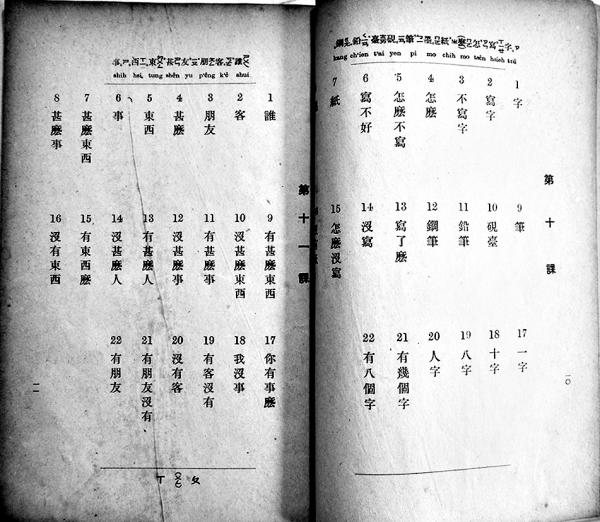 字寫怎麼紙墨筆硯臺鉛鋼
kang ch'ien t'ai yen pi mo chih mo tsên hsieh tzŭ
第十課
1 字
2 寫字
3 不寫字
4 怎麼
5 怎麼不寫
6 寫不好
7 紙
9 筆
10 硯臺
11 鉛筆
12 鋼筆
13 寫了麼
14 沒寫
15 怎麼沒寫
17 一字
18 十字
19 八字
20 人字
21 有幾個字
22 有八個字
一〇
誰客朋友甚東西事
shih hsi, tung shên yu p'êng k'ê shui
第十一課
1 誰
2 客
3 朋友
4 甚麼
5 東西
6 事
7 甚麼東西
8 甚麼事
9 有甚麼東西
10 沒甚麼東西
11 有甚麼事
12 沒甚麼事
13 有甚麼人
14 沒甚麼人
15 有東西麼
16 沒有東西
17 你有事麼
18 我沒事
19 有客沒有
20 沒有客
21 有朋友沒有
22 有朋友
一一